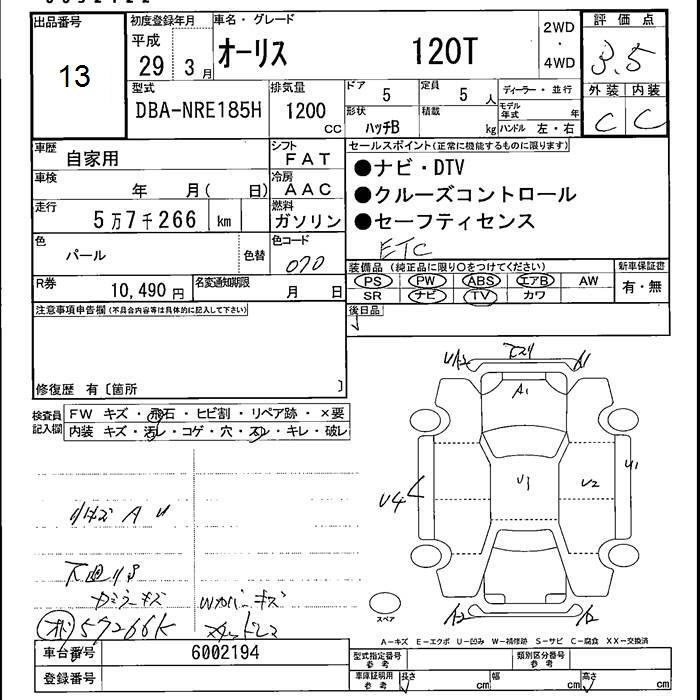 出品番号
13
初度登録年月
平成
29 3月
車名・グレード
オーリス 120T
2WD
・
4WD
評価点
3.5
外装 内装
C C
型式
DBA-NRE185H
排気量
1200
CC
ドア
5
定員
5 人
形状
ハッチB
積載
kg
ディーラー・並行
モデル年式 年
ハンドル 左・右
車歴
自家用
シフト
FAT
車検
年 月( 日)
冷房
AAC
走行
5万7千266 km
燃料
ガソリン
色
パール
色替
色コード
070
R券
10,490 円
名変通知期限
月 日
セールスポイント(正常に機能するものに限ります)
●ナビ・DTV
●クルーズコントロール
●セーフティセンス
ETC
装備品 (純正品に限り○をつけてください)
PS PW ABS エアB AW
SR ナビ TV カワ
新車保証書
有・無
後日品
注意事項申告欄(不具合内容等は具体的に記入して下さい)
修復歴 有〔箇所 〕
検査員記入欄
FW キズ・飛石・ヒビ割・リペア跡・×要
内装 キズ・汚レ・コゲ・穴・スレ・キレ・破レ
A U
下廻りサ
カバーキズ
57266K
車台番号
6002194
登録番号
A1
U3
U2
U1
U4
A2
スペア
A-キズ E-エクボ U-凹み W-補修跡 S-サビ C-腐食 XX-交換済
型式指定番号
参考
類別区分番号
参考
車庫証明用
参考
長さ cm 幅 cm 高さ cm